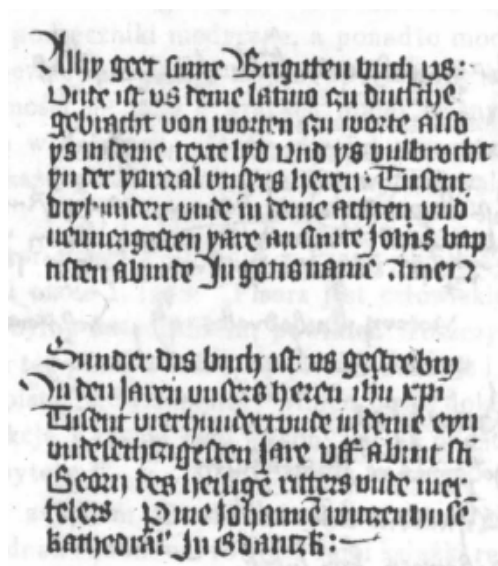 Alhy geet sinte Brigitten buch us:
Unde ist us deme latino czu dutsche
gebracht von worten czu worte also
ys in seme texte lyd und ys vulbrocht
yn der yarczal unsers heren Tusent
dryhundert unde in deme achten und
neunczigesten yare an sinte Joh̄is bap
tisten abunde In gotis namē Amen
Sunder dis buch ist us geschrebin
In den Jaren unsers herren ihū xpi
Tusent vierhundert unde in deme eyn
unde sechczigesten Jare uff abunt sti
Georij des heilige ritters unde mer
telers P me Johannē
In Gdanczk: